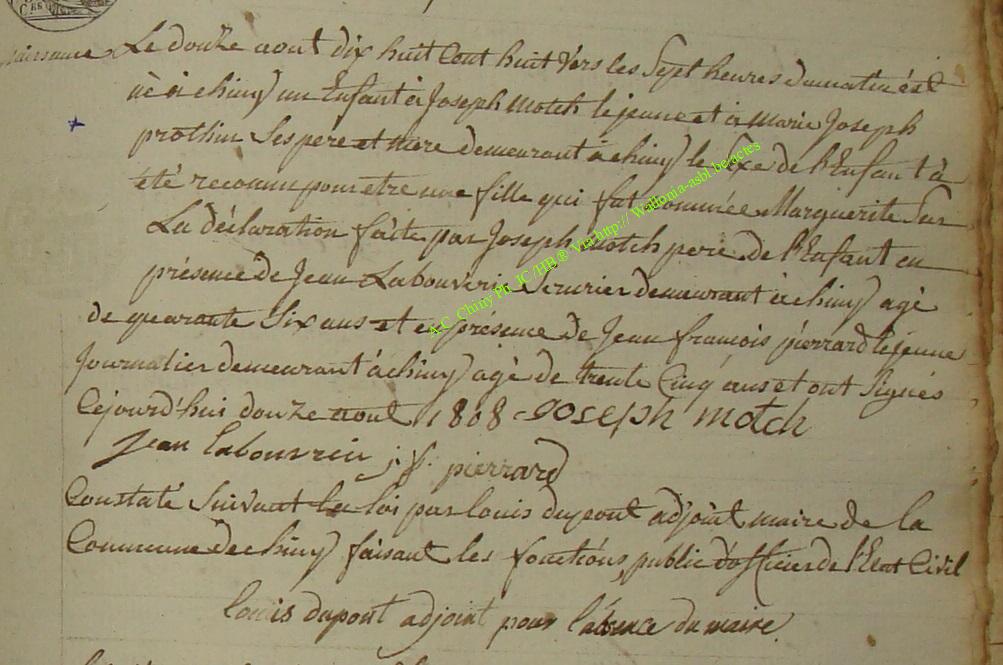 naissance Le douze aout dix huit Cent huit vers les Sept heures du matin est
né à chiny un Enfant à Joseph Motch le jeune et à Marie Joseph
prothin Ses pere et mere demeurant à chiny le Sexe de l'Enfant à
été reconnu pour etre une fille qui fut nommée Marguerite Sur
La déclaration faite par Joseph Motch pere de l'Enfant en
présence de Jean Labouverie Serurier demeurant à chiny agé
de quarante Six ans et en présence de Jean françois piérrard le jeune
Journalier demeurant à chiny agé de trente Cinq ans et ont Signés
Cejourd'hui douze aout 1808 Joseph motch
Jean labouvrie j. f. pierrard
Constaté Suivant la loi par louis dupont adjoint maire de la
Commune de chiny faisant les fonctions public d'officier de l'Etat Civil
louis dupont adjoint pour l'absence du maire
A.C. Chiny Ph. JC /HB ® Via http:// Wallonia-asbl.be/actes